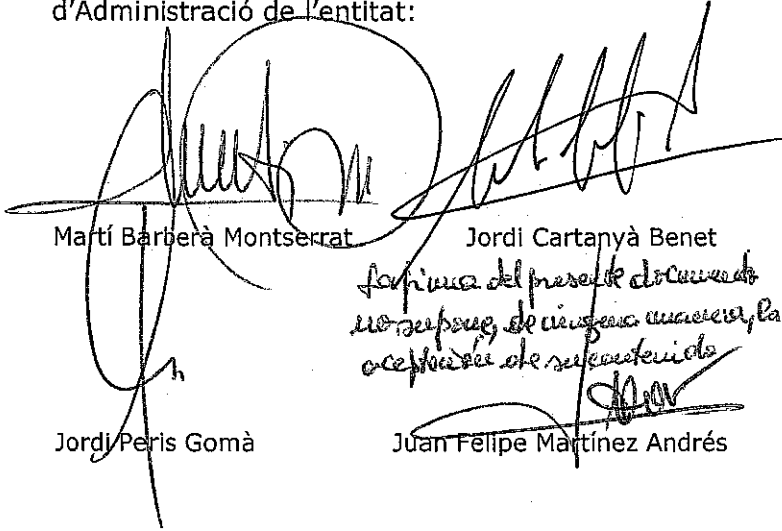 d'Administració de l'entitat:
Martí Barberà Montserrat
Jordi Cartanyà Benet
La firma del presente documento
no supone, de ninguna manera, la
aceptación de su contenido
Jordi Peris Gomà
Juan Felipe Martínez Andrés